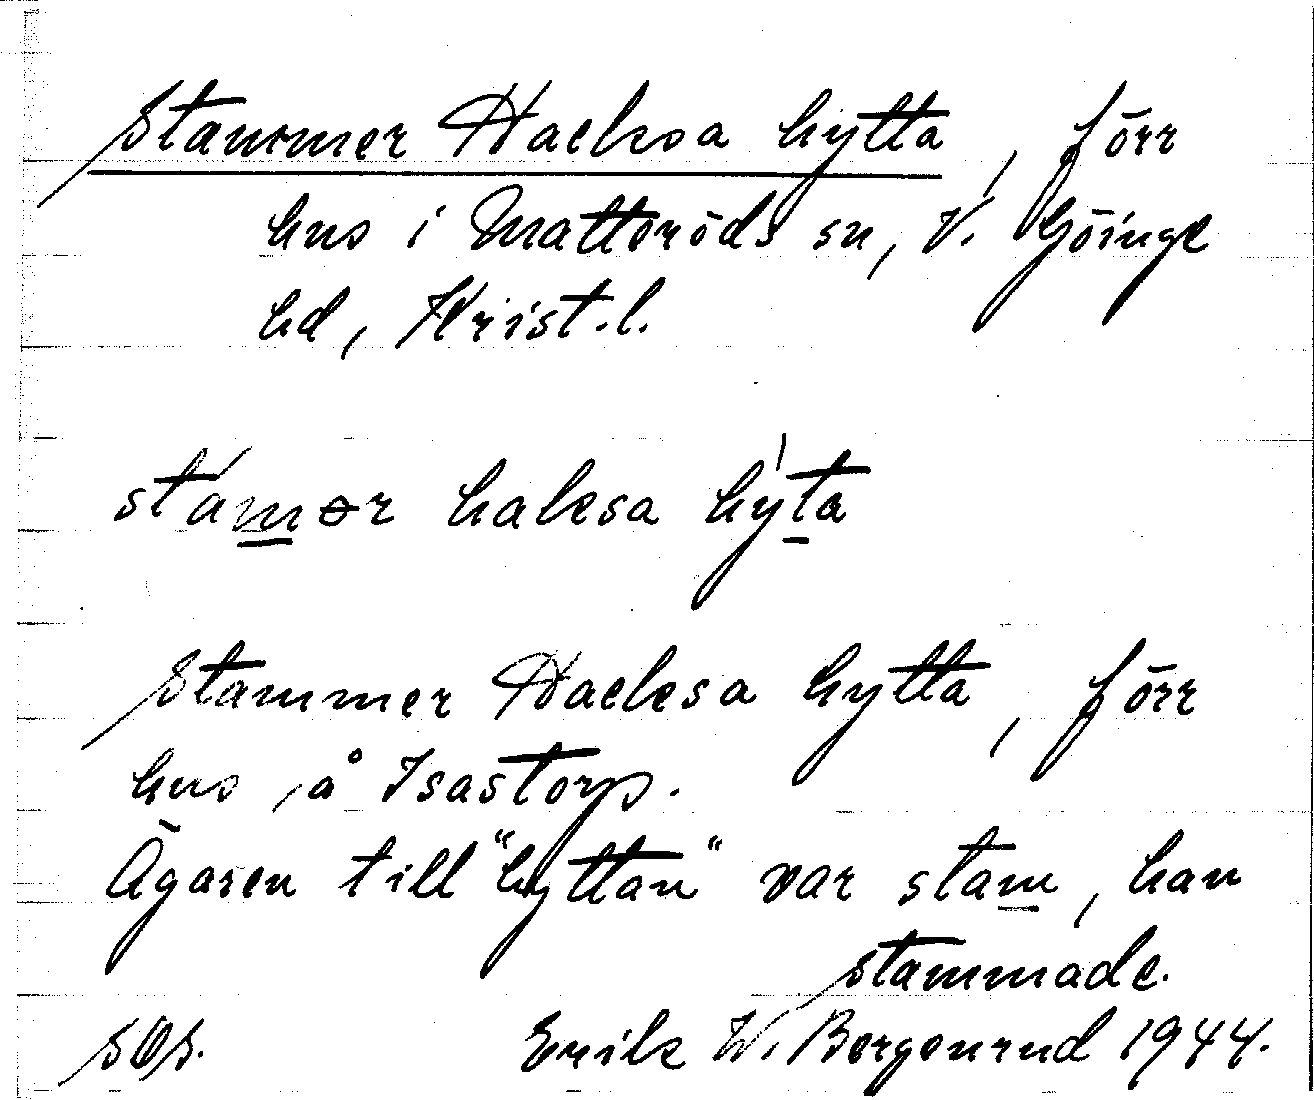 Stammer Hacksa hytta, förr
hus i Matteröds sn, V. Göinge
hd, Krist.l.
stámər haksa hỳta
Stammer Hacksa hytta, förr
hus, å Isastorp.
Ägaren till "hyttan" var stam, han
stammade.
Erik W. Bergenrud 1944.